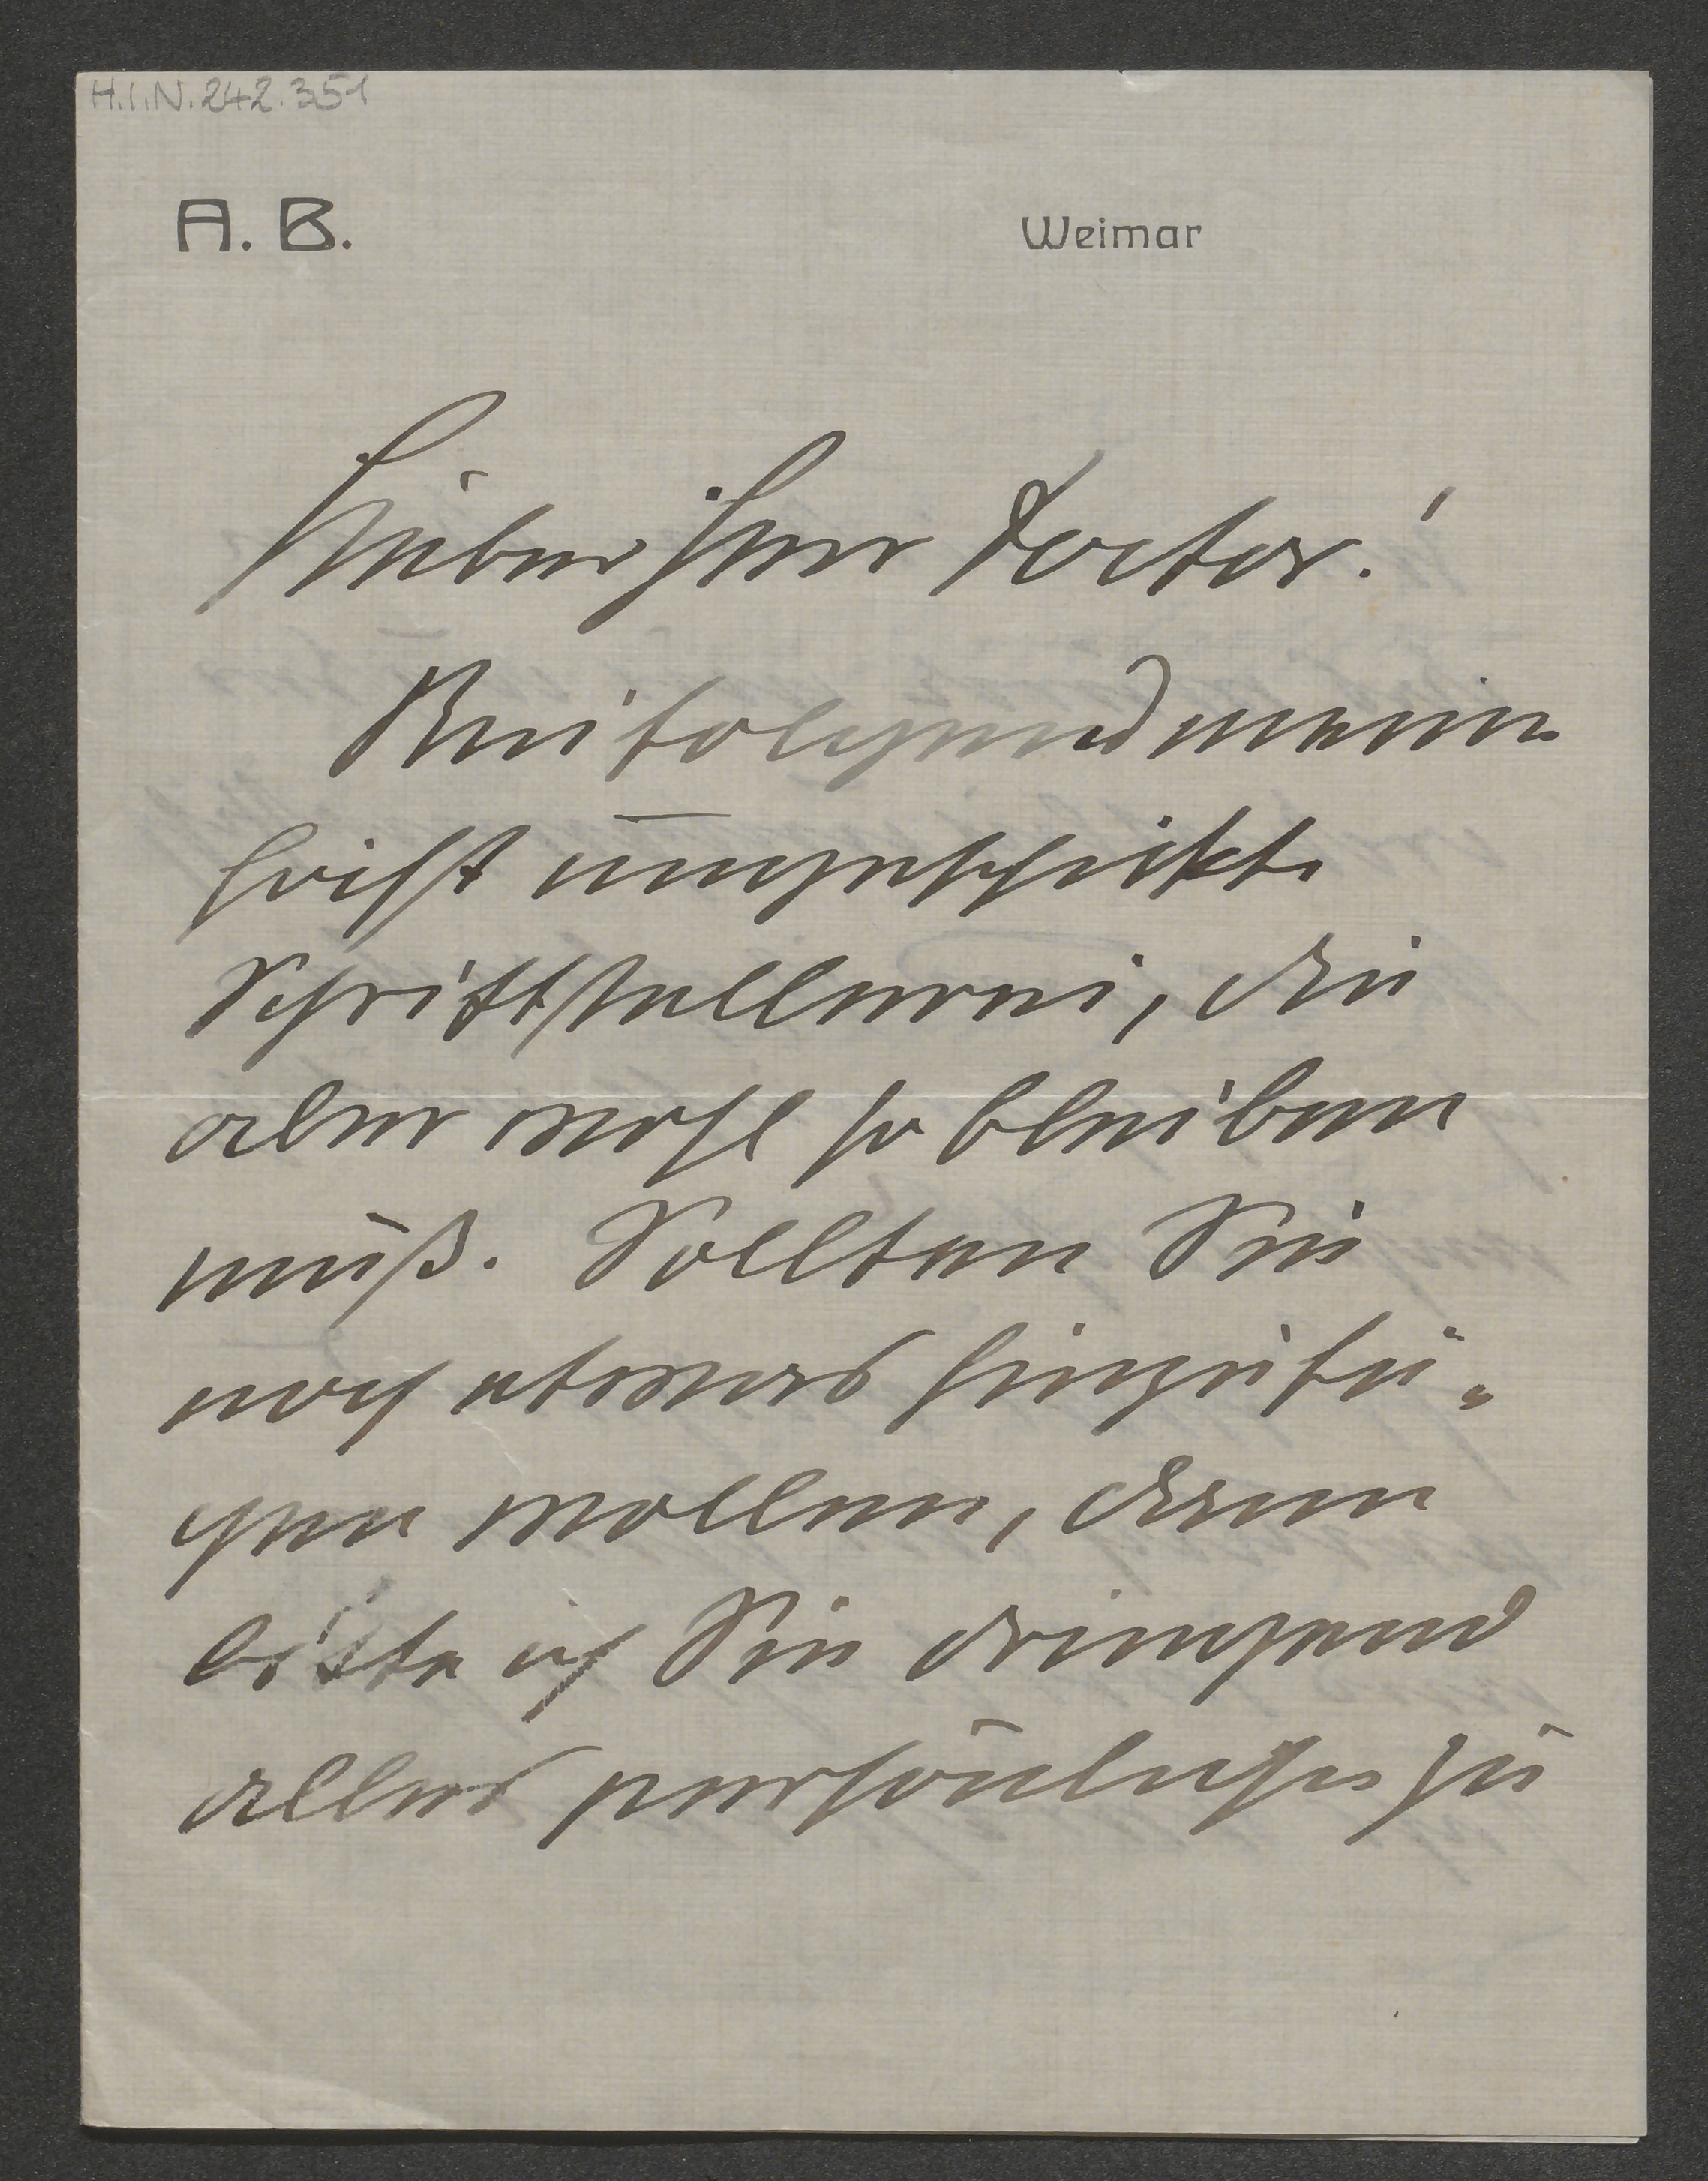 H.I.N. 242.351
A. B. Weimar
Lieber Herr Doctor!
Beifolgend meine
höchst ungeschickte
Schriftstellerei, die
aber wohl so bleiben
muß. Sollten Sie
noch etwas hinzufü-
gen wollen, dann
bitte ich Sie dringend
alles persönliche zu